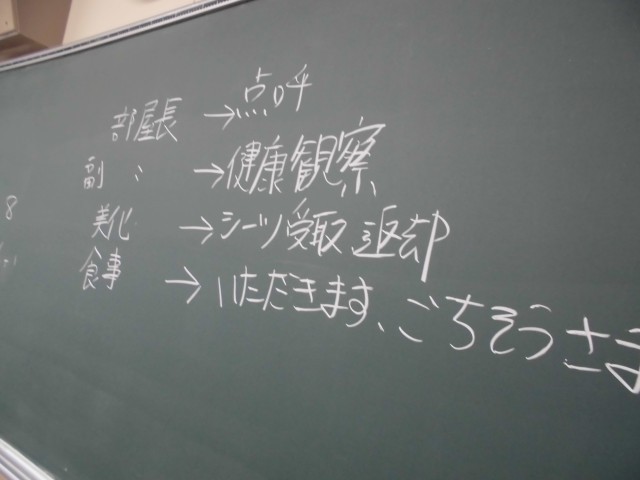 部屋長 → 点呼
副 〃 → 健康観察
美化 → シーツ受取 返却
食事 → いただきます、ごちそうさま
8